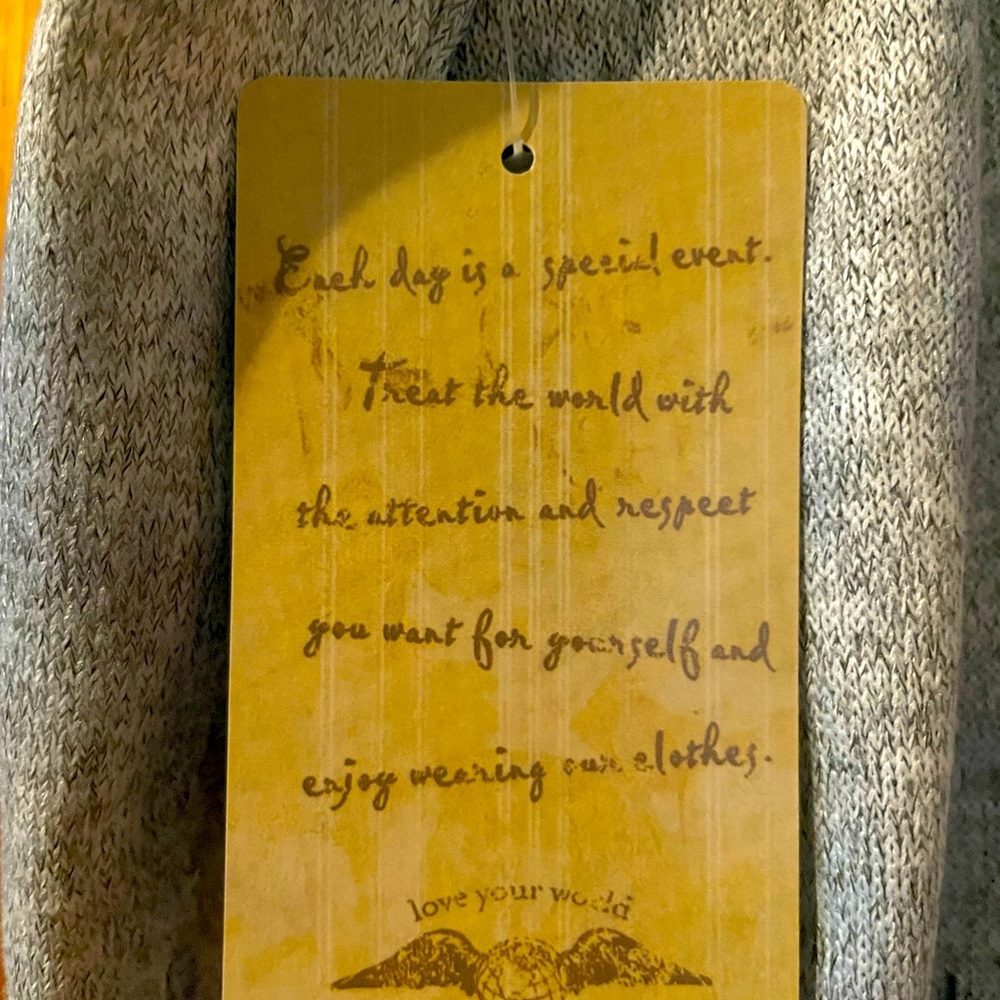 Each day is a special event.
Treat the world with
the attention and respect
you want for yourself and
enjoy wearing our clothes.
love your world